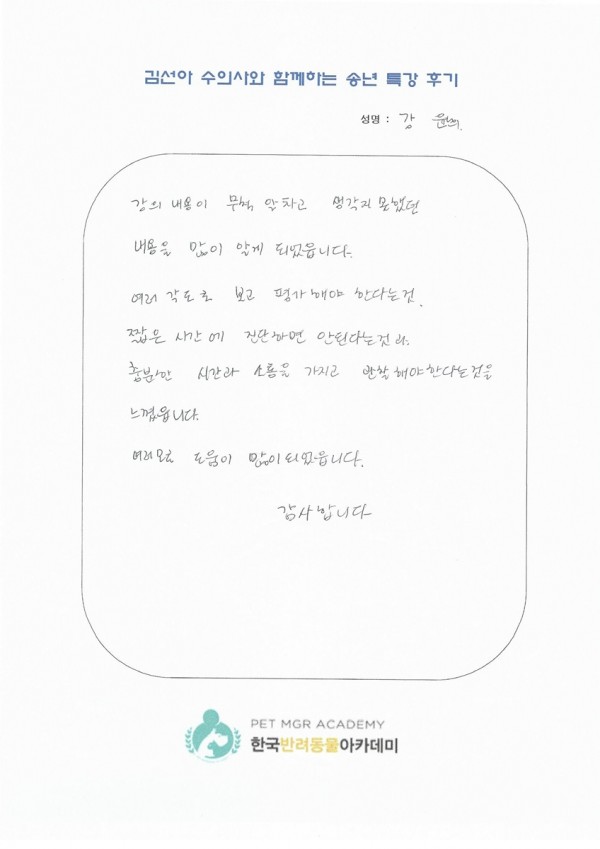 김선아 수의사와 함께하는 송년 특강 후기
성명 : 강
강의 내용이 무척 알차고 생각지 못했던
내용을 많이 알게 되었읍니다.
여러 각도로 보고 평가해야 한다는것.
짧은 시간에 진단하면 안된다는것과.
충분한 시간과 소통을 가지고 관찰해야한다는것을
느꼈읍니다.
여러모로 도움이 많이되었읍니다.
감사합니다
PET MGR ACADEMY
한국반려동물아카데미